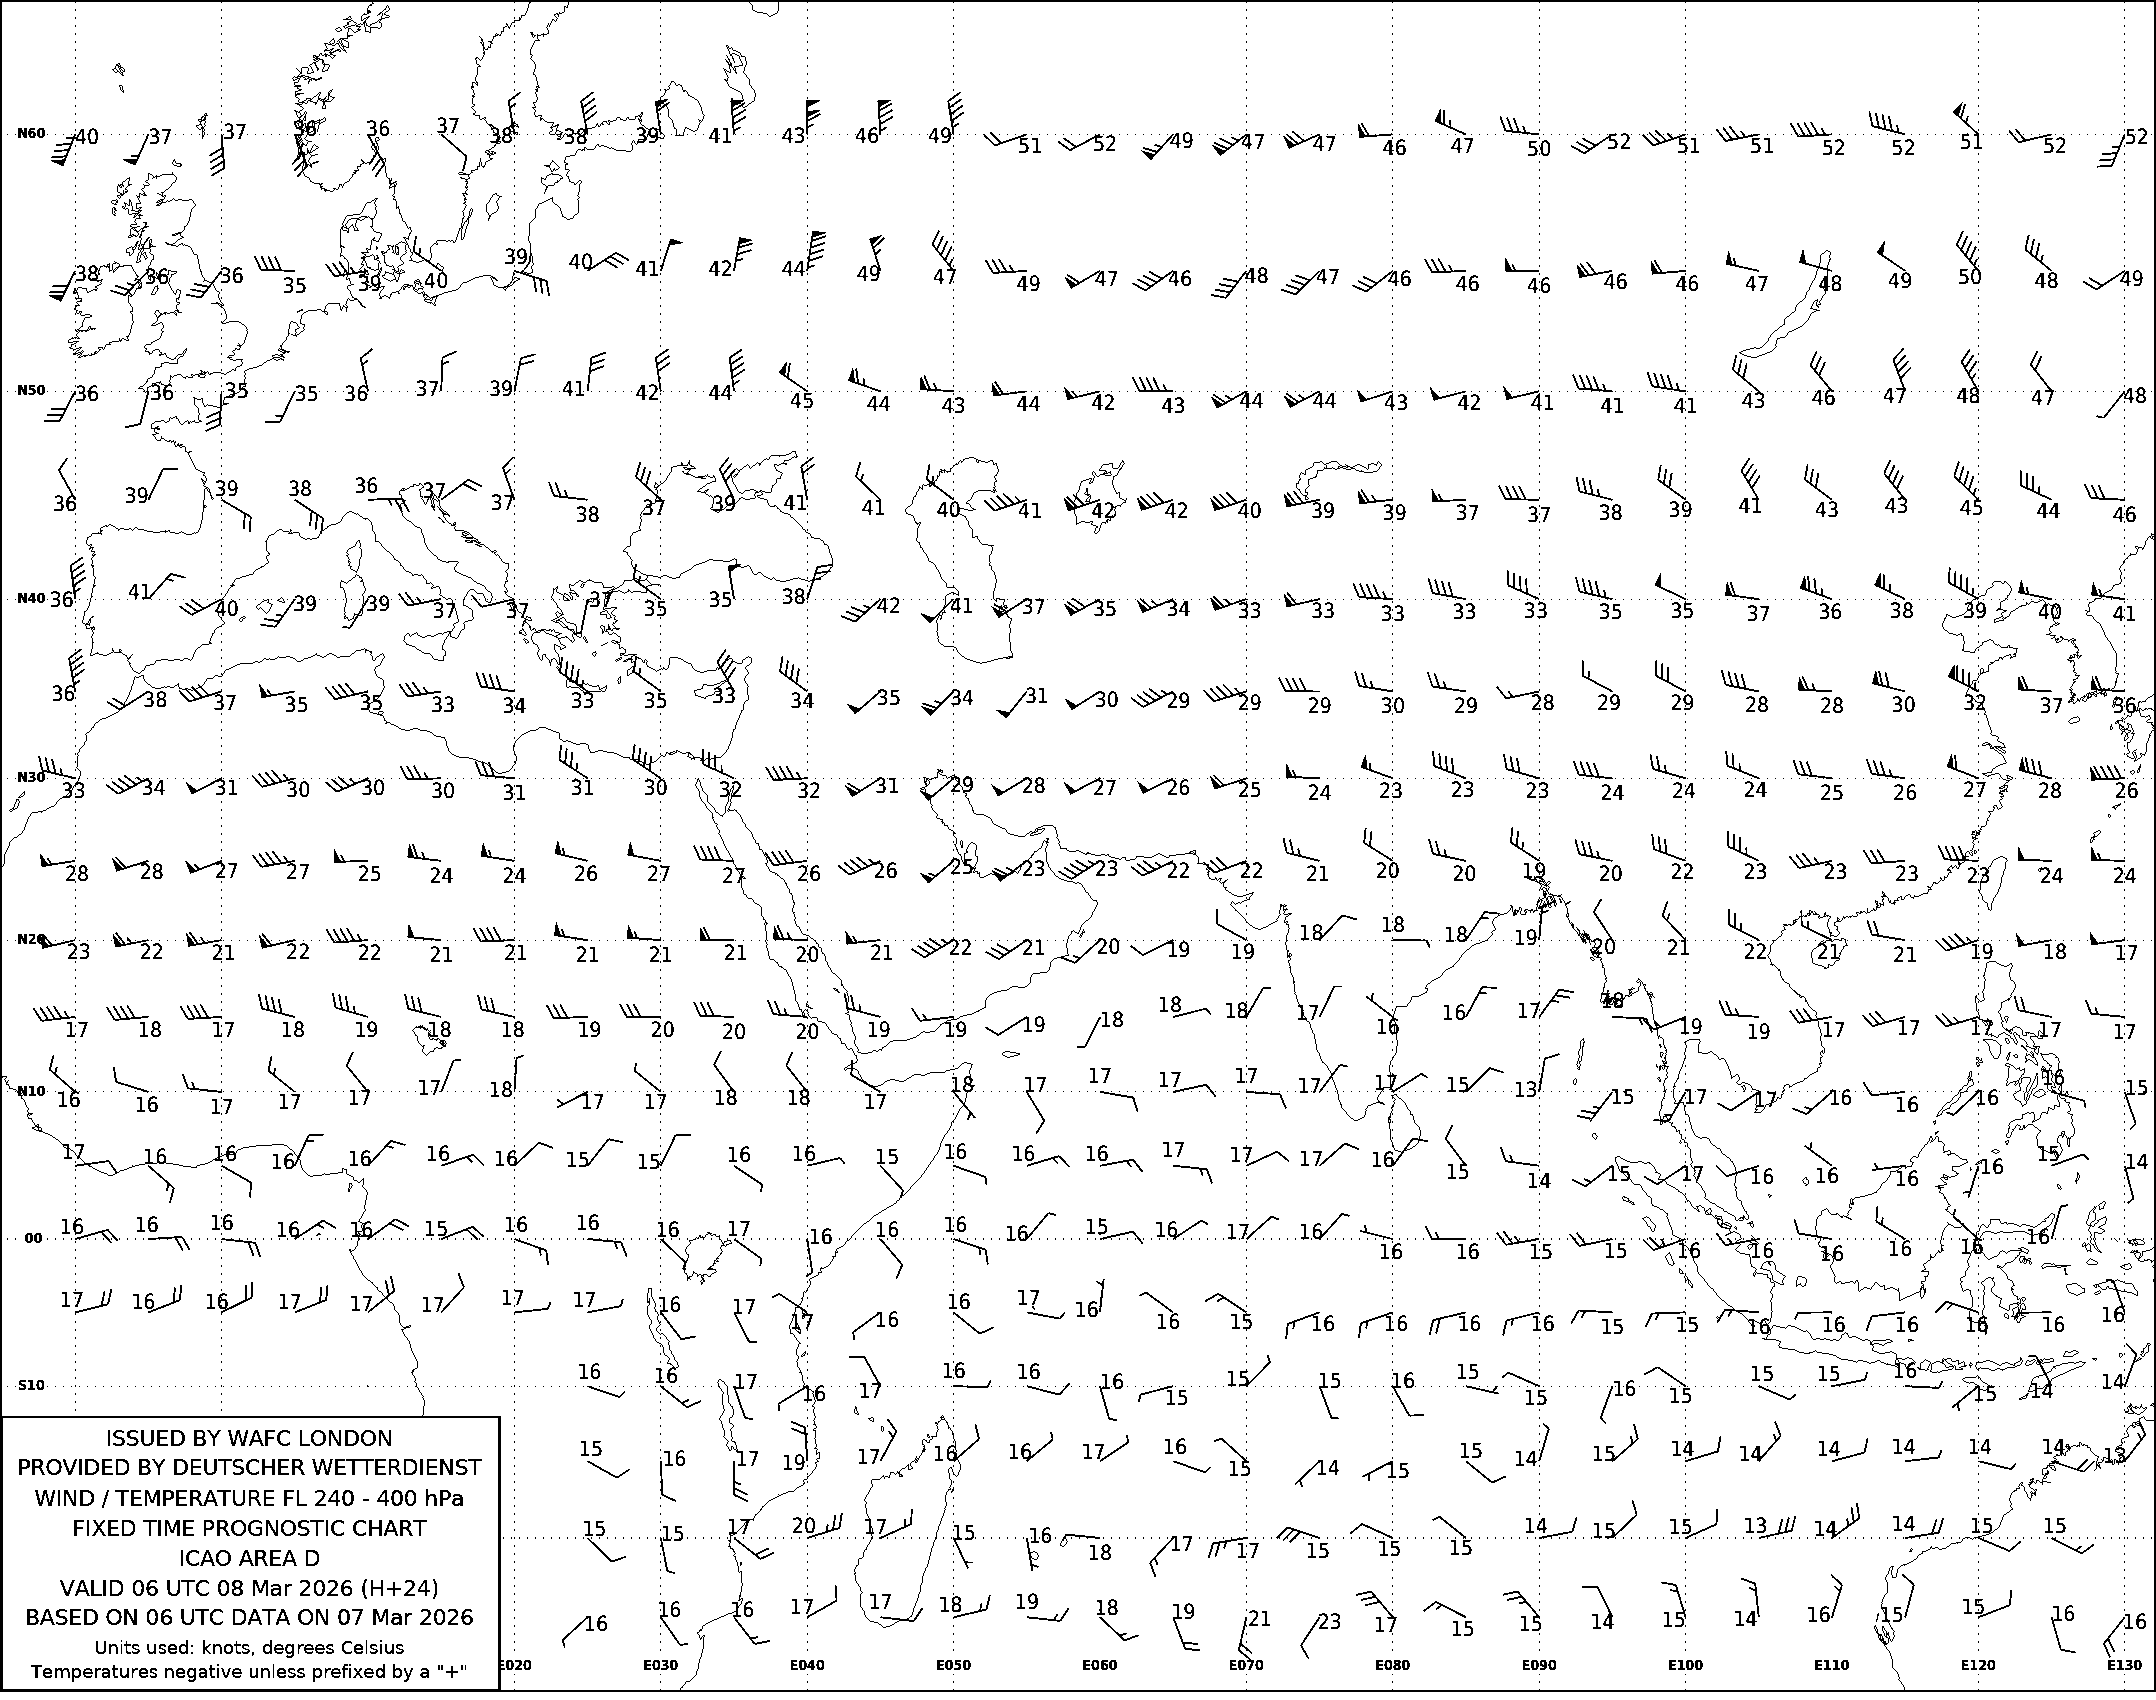 N60 40 37 37 36 36 37 38 38 39 41 43 46 49 51 52 49 47 47 46 47 50 52 51 51 52 52 51 52 52
38 36 36 35 39 40 39 40 41 42 44 49 47 49 47 46 48 47 46 46 46 46 46 47 48 49 50 48 49
N50 36 36 35 35 36 37 39 41 42 44 45 44 43 44 42 43 44 44 43 42 41 41 41 43 46 47 48 47 48
36 39 39 38 36 37 37 38 37 39 41 41 40 41 42 42 40 39 39 37 37 38 39 41 43 43 45 44 46
N40 36 41 40 39 39 37 37 37 35 35 38 42 41 37 35 34 33 33 33 33 33 35 35 37 36 38 39 40 41
36 38 37 35 35 33 34 33 35 33 34 35 34 31 30 29 29 29 30 29 28 29 29 28 28 30 32 37 36
N30 33 34 31 30 30 30 31 31 30 32 32 31 29 28 27 26 25 24 23 23 23 24 24 24 25 26 27 28 26
28 28 27 27 25 24 24 26 27 27 26 26 25 23 23 22 22 21 20 20 19 20 22 23 23 23 23 24 24
N20 23 22 21 22 22 21 21 21 21 21 20 21 22 21 20 19 19 18 18 18 19 20 21 22 21 21 19 18 17
17 18 17 18 19 18 18 19 20 20 20 19 19 19 18 18 18 17 16 16 17 18 19 19 17 17 17 17 17
N10 16 16 17 17 17 17 18 17 17 18 18 17 18 17 17 17 17 17 17 15 13 15 17 17 16 16 16 16 15
17 16 16 16 16 16 16 15 15 16 16 15 16 16 16 17 17 17 16 15 14 15 17 16 16 16 16 15 14
00 16 16 16 16 16 15 16 16 16 17 16 16 16 16 15 16 17 16 16 16 15 15 16 16 16 16 16 16
17 16 16 17 17 17 17 17 16 17 17 16 16 17 16 16 15 16 16 16 16 15 15 16 16 16 16 16 16
S10 16 16 17 16 17 16 16 16 15 15 15 16 15 15 16 15 15 15 16 15 14 14
15 16 17 19 17 16 16 17 16 15 14 15 15 14 15 14 14 14 14 14 14 13
15 15 17 20 17 15 16 18 17 17 15 15 15 14 15 15 13 14 14 15 15
16 16 16 17 17 18 19 18 19 21 23 17 15 15 14 15 14 16 15 15 16 16
E020 E030 E040 E050 E060 E070 E080 E090 E100 E110 E120 E130
ISSUED BY WAFC LONDON
PROVIDED BY DEUTSCHER WETTERDIENST
WIND / TEMPERATURE FL 240 - 400 hPa
FIXED TIME PROGNOSTIC CHART
ICAO AREA D
VALID 06 UTC 08 Mar 2026 (H+24)
BASED ON 06 UTC DATA ON 07 Mar 2026
Units used: knots, degrees Celsius
Temperatures negative unless prefixed by a "+"